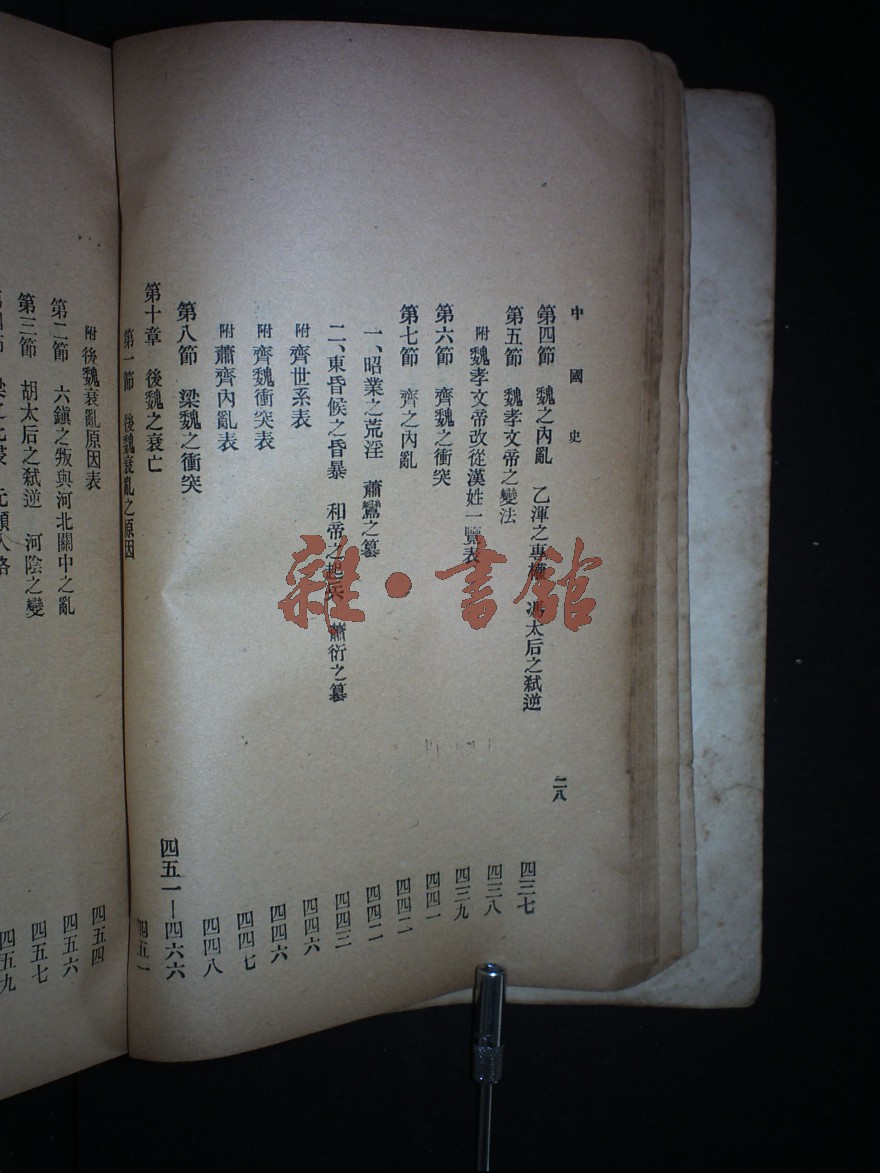 中國史
二八
第四節 魏之內亂 乙渾之專權 馮太后之弒逆 四三七
第五節 魏孝文帝之變法 四三八
附 魏孝文帝改從漢姓一覽表 四三九
第六節 齊魏之衝突 四四一
第七節 齊之內亂 四四二
一、昭業之荒淫 蕭鸞之篡 四四二
二、東昏候之昏暴 和帝之起兵 蕭衍之篡 四四三
附 齊世系表 四四六
附 齊魏衝突表 四四六
附 蕭齊內亂表 四四七
第八節 梁魏之衝突 四四八
第十章 後魏之衰亡 四五一—四六六
第一節 後魏衰亂之原因 四五一
附 後魏衰亂原因表 四五四
第二節 六鎮之叛與河北關中之亂 四五六
第三節 胡太后之弒逆 河陰之變 四五七
四五九
雜·書館